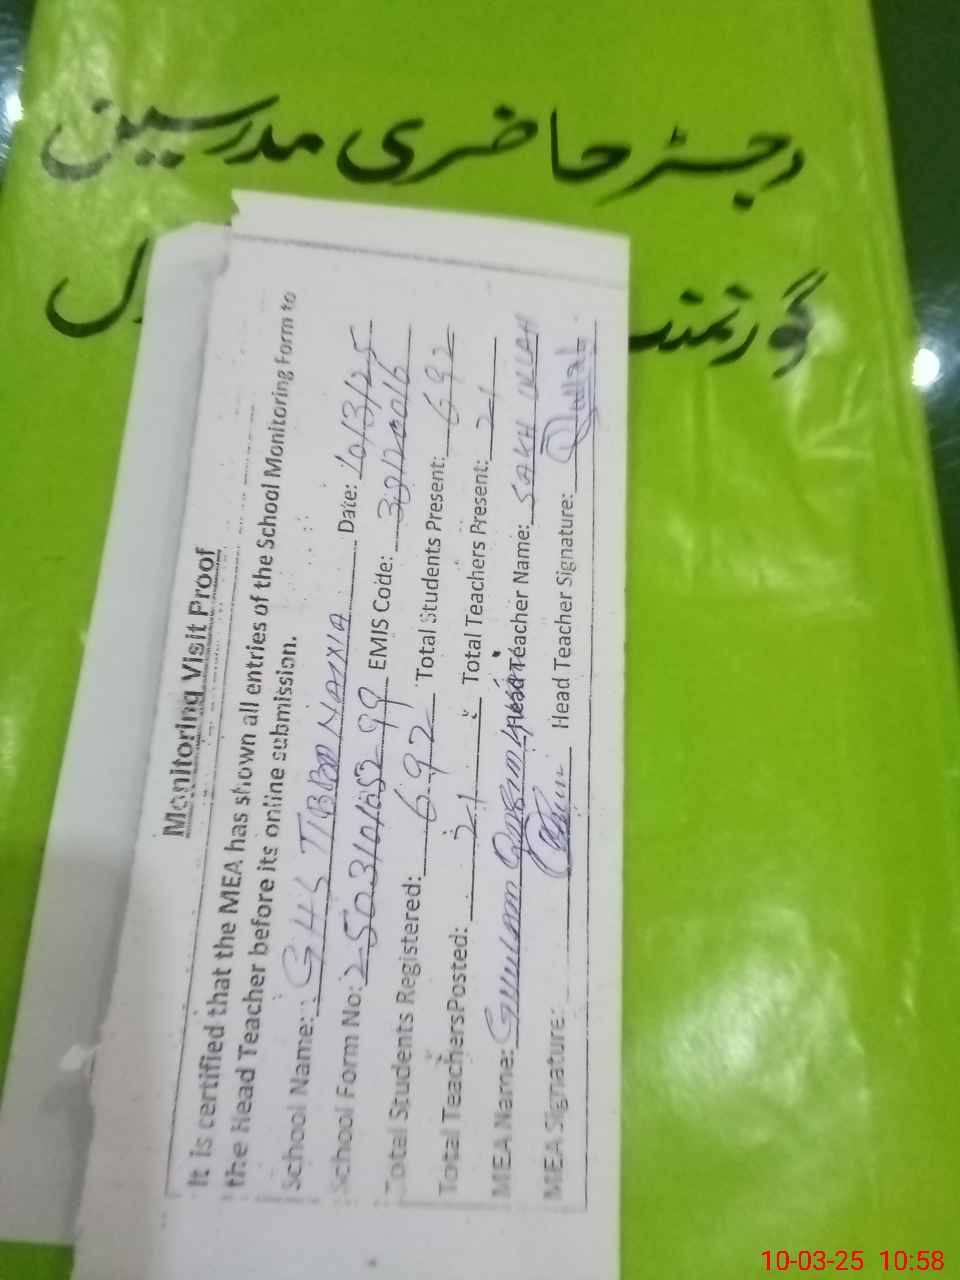 رجسٹر حاضری مدرسین
گورنمنٹ
Monitoring Visit Proof
It is certified that the MEA has shown all entries of the School Monitoring Form to
the Head Teacher before its online submission.
School Name: GHS TIBBI Date: 10/3/25
School Form No: EMIS Code:
Total Students Registered: 692 Total Students Present: 692
Total Teachers Posted: 21 Total Teachers Present: 21
MEA Name: Ghulam Qasim Head Teacher Name: SAKH ULLAH
MEA Signature: Head Teacher Signature:
10-03-25 10:58